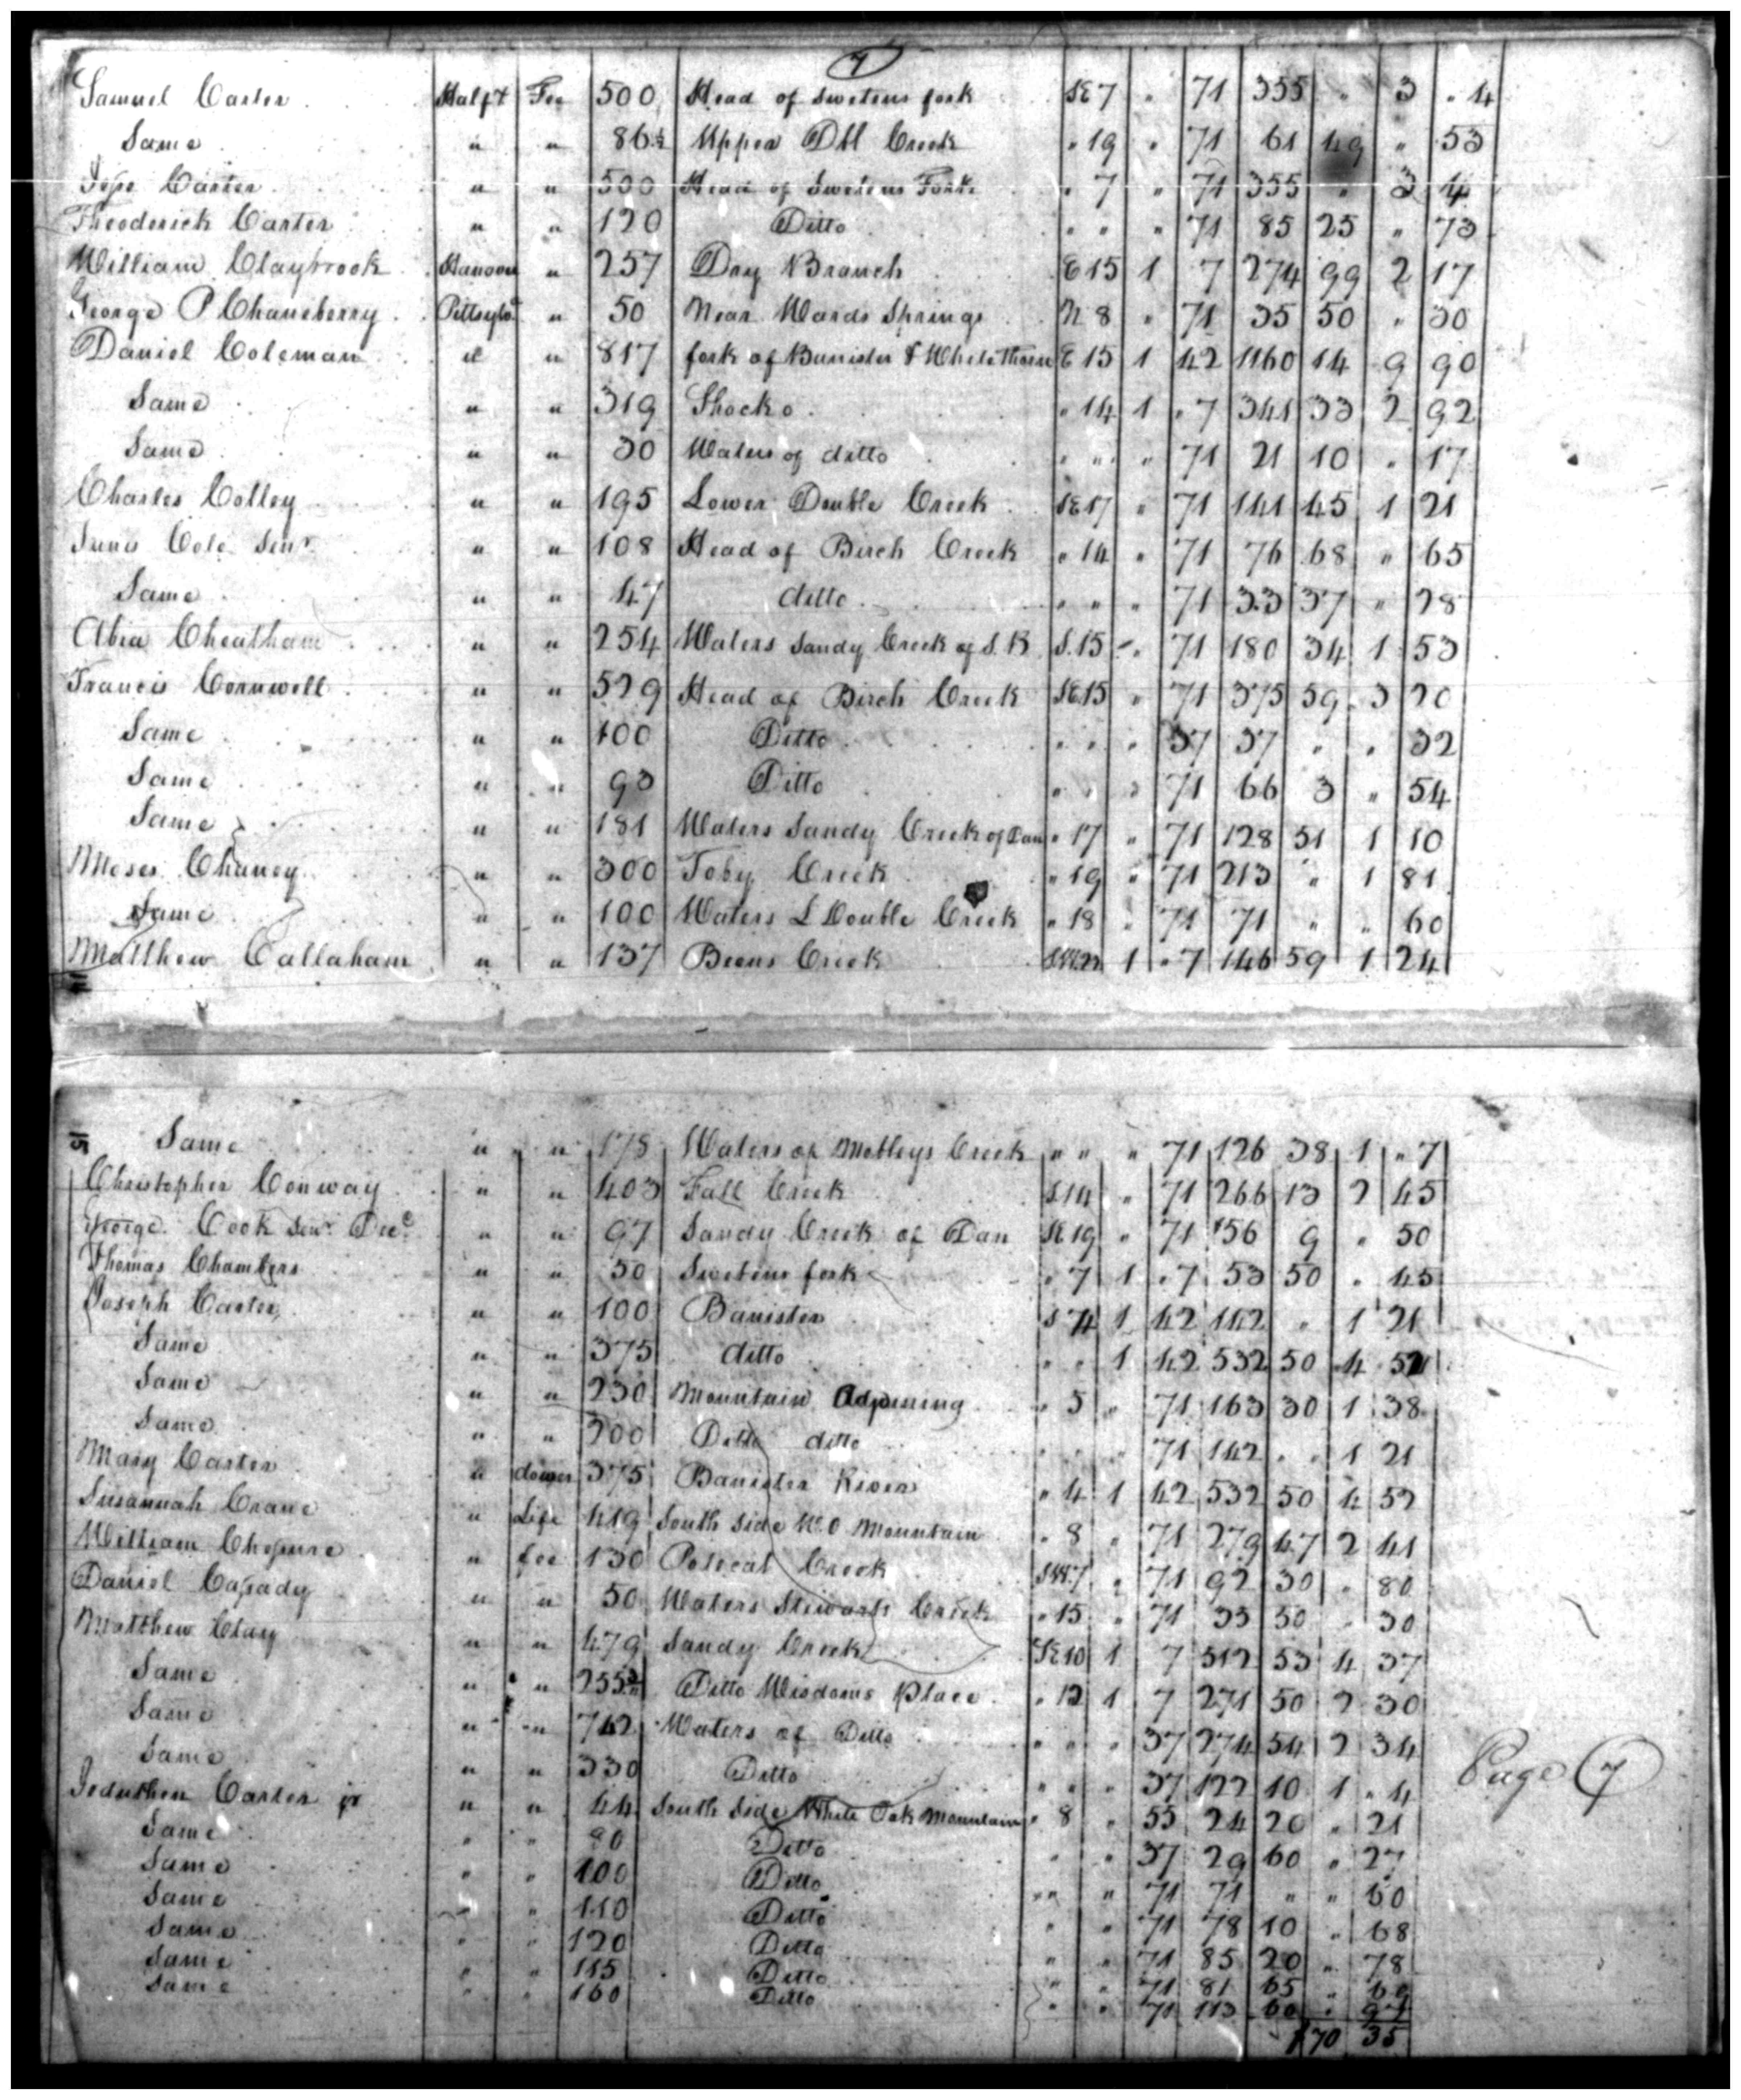 7
Samuel Carter Halfx Fee 500 Head of Swetens fork SE 7 " 71 355 " 3 " 4
Same " " 86½ Upper Dbl Creek " 19 " 71 61 49 " 53
" " 500 Head of Swetens Fork " 7 " 71 355 " 3 4
Theoderick Carter " " 120 Ditto " " " 71 85 25 " 73
William Claybrook Hanover " 257 Dry Branch E 15 1 7 274 99 2 17
George P Chaneberry Pittsylva " 50 Near Wards Springs N 8 " 71 35 50 " 30
Daniel Coleman " 817 fork of Banister & Whitethorn E 15 1 42 1160 14 9 90
Same " " 319 Shocko " 14 1 " 7 341 33 2 92
Same " " 30 Waters of ditto " " " 71 21 10 " 17
Charles Colley " " 195 Lower Double Creek SE 17 " 71 141 45 1 21
Cole Senr " " 108 Head of Birch Creek " 14 " 71 76 68 " 65
Same " " 47 ditto " " " 71 33 37 " 28
Abia Cheatham " " 254 Waters Sandy Creek of S. R S. 15 " 71 180 34 1 53
Francis Cornwell " " 529 Head of Birch Creek SE 15 " 71 375 59 3 20
Same " " 100 Ditto " " " 37 37 " " 32
Same " " 93 Ditto " " " 71 66 3 " 54
Same " " 181 Waters Sandy Creek of Dan " 17 " 71 128 51 1 10
Moses Chaney " " 300 Toby Creek " 19 " 71 213 " 1 81
Same " " 100 Waters L Double Creek " 18 " 71 71 " " 60
Matthew Callaham " " 137 Beens Creek SW 22 1 " 7 146 59 1 24
Same " " 178 Waters of Motleys Creek " " " 71 126 38 1 " 7
Christopher Conway " " 403 Fall Creek S 14 " 71 266 13 2 45
George Cook Senr Decd " " 97 Sandy Creek of Dan SE 19 " 71 156 9 " 50
Thomas Chambers " " 50 Swetens fork " 7 1 " 7 53 50 " 45
Joseph Carter " " 100 Banister S 4 1 42 142 " 1 21
Same " " 375 ditto " " 1 42 532 50 4 52
Same " " 230 Mountain Adjoining " 5 " 71 163 30 1 38
Same " " 200 Ditto ditto " " " 71 142 " " 1 21
Mary Carter " dower 375 Banister River " 4 1 42 532 50 4 52
Susannah Crane " Life 419 South Side W. O Mountain " 8 " 71 279 47 2 41
William " fee 130 Polecat Creek SW 7 " 71 92 30 " 80
Daniel Casady " " 50 Waters Stewarts Creek " 15 " 71 35 50 " 30
Matthew Clay " " 479 Sandy Creek SE 10 1 7 512 53 4 37
Same " " 255 Ditto Wisdoms Place " 12 1 7 271 50 2 30
Same " " 742 Waters of Ditto " " " 37 274 54 2 34
Same " " 330 Ditto " " " 37 122 10 1 " 4
Page 7
Jeduthen Carter jr " " 44 South Side White Oak Mountain " 8 " 55 24 20 " 21
Same " " 80 Ditto " " 37 29 60 " 27
Same " " 100 Ditto " " " 71 71 " " 60
Same " 110 Ditto " " 71 78 10 " 68
Same " " 120 Ditto " " 71 85 20 " 78
Same " " 115 Ditto " " 71 81 65 "
Same " " 160 Ditto " " 71 113 60 "
170 35